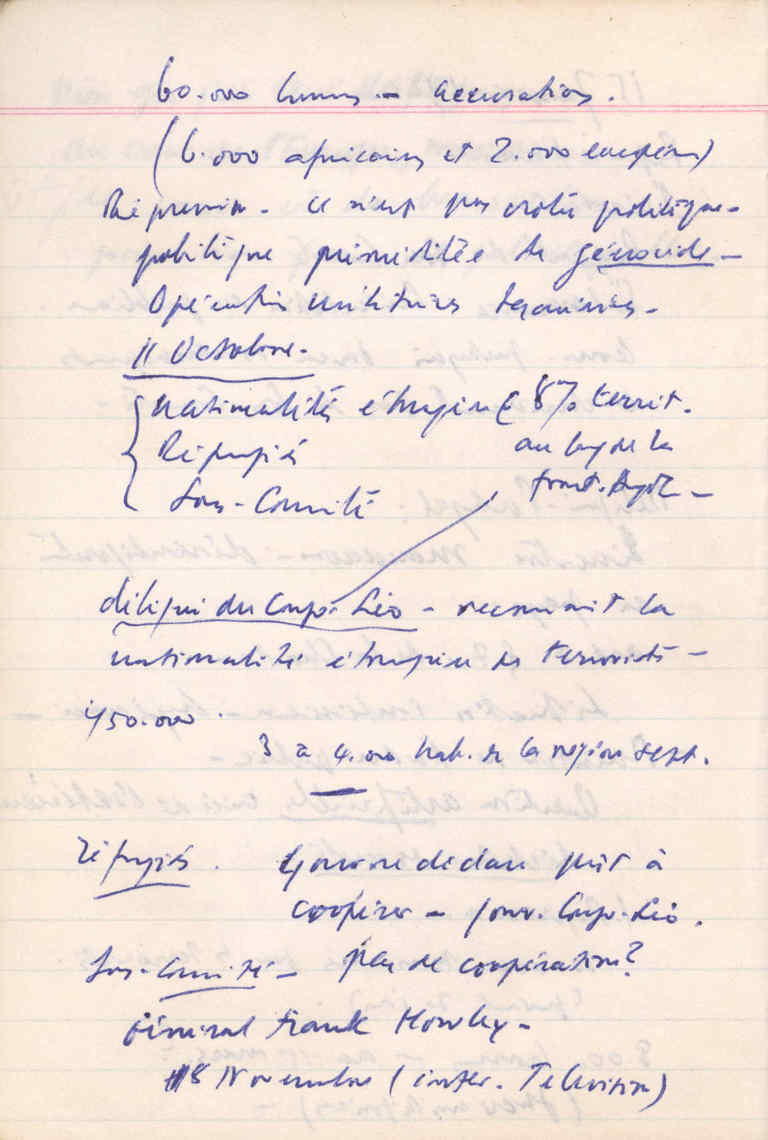 60.000 - accusations.
(6.000 africains et 2.000 européens)
Répression - ce n'est pas politique -
politique préméditée de génocide -
Opérations militaires terminées -
11 Octobre -
nationalités étrangère 8% territ.
Réfugiés au long de la
Sous-Comité front. -
délégué du Congo-Léo - reconnait la
nationalité étrangère des terroristes -
150.000.
3 à 4.000 hab. de la région sept.
Réfugiés. gouvernt de dans prêt à
coopérer - gouv. Congo-Léo.
Sous-Comité - pas de coopération?
Général Frank Howley -
8 Novembre (inter. Television)